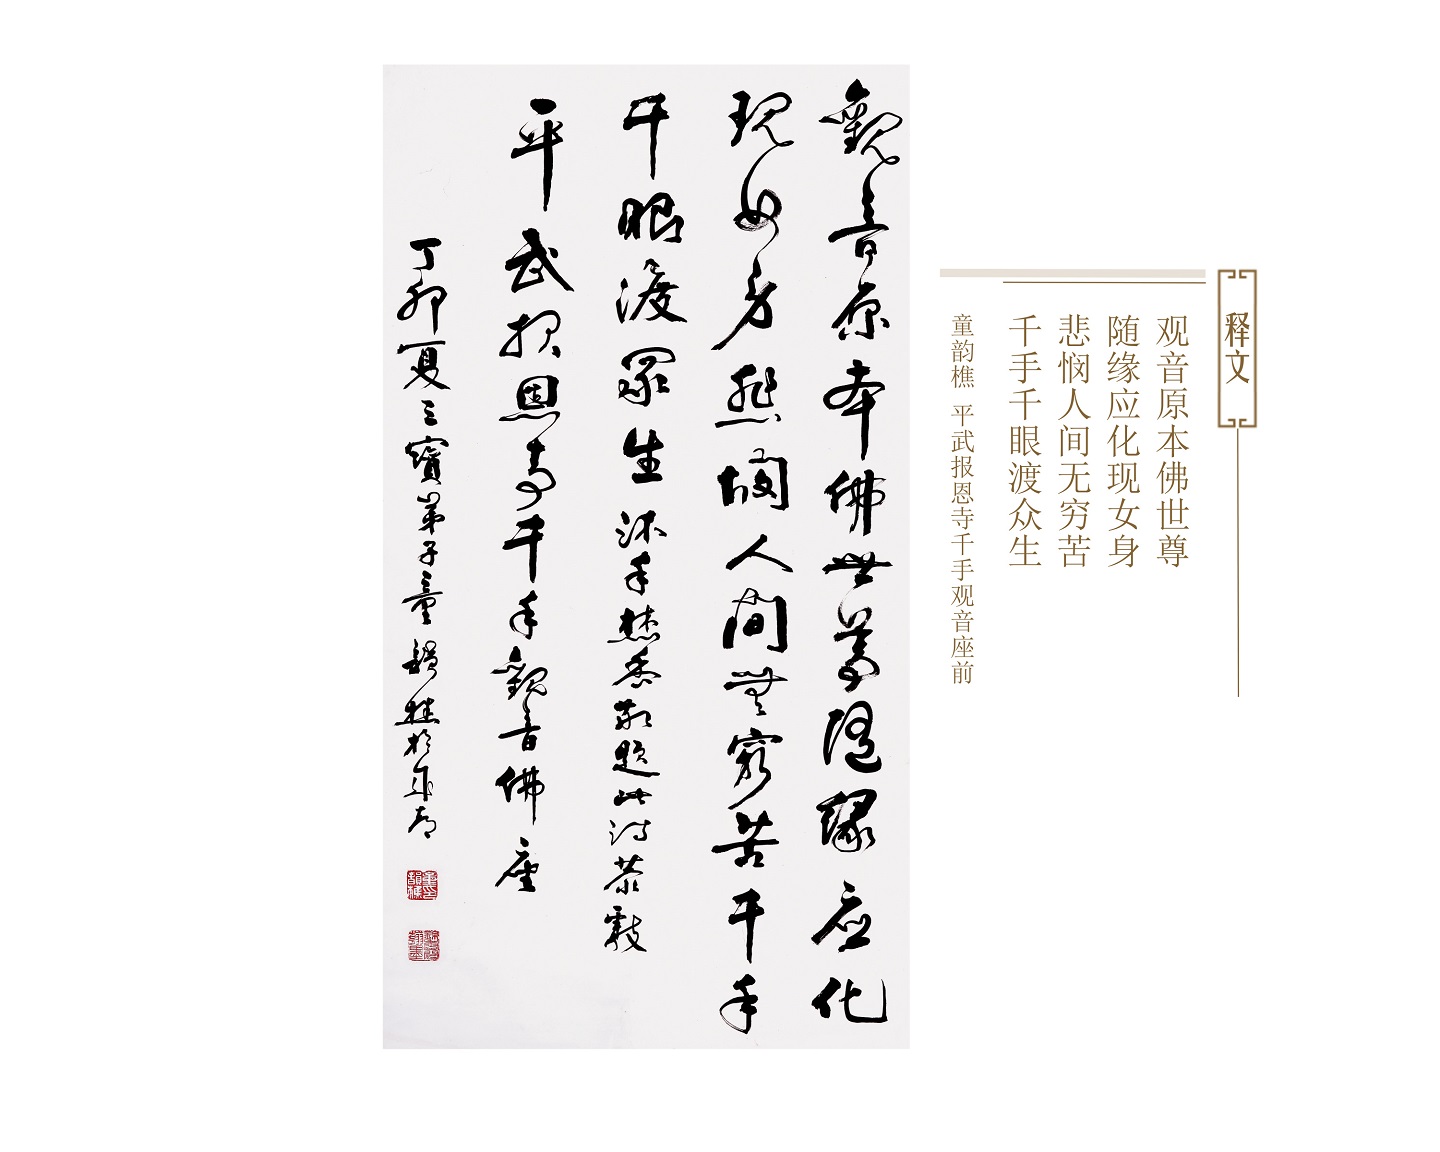 释文
观音原本佛世尊
随缘应化现女身
悲悯人间无穷苦
千手千眼渡众生
童韵樵 平武报恩寺千手观音座前
觀音原本佛世尊隨緣应化
現女身悲憫人間無窮苦千手
千眼渡眾生沐手焚香敬題此詩恭
平武报恩寺千手觀音佛座
丁卯夏三寶弟子童韻樵於成都